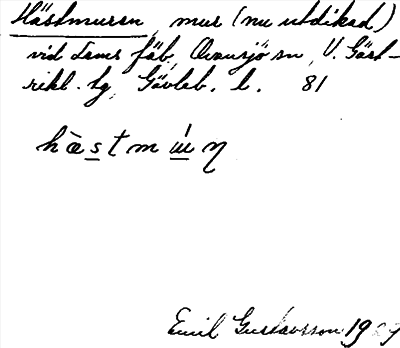 Hästmuren, mur (nu utdikad)
vid Lams fäb, Ovansjö sn, V. Gäst-
rikl. tg, Gävleb. l. 81
hàstmúη
Emil Gustavsson 19